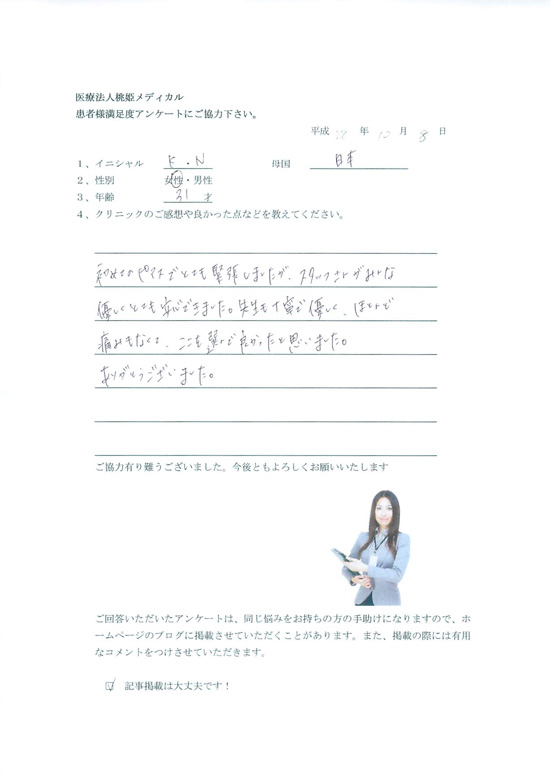 医療法人桃姫メディカル
患者様満足度アンケートにご協力下さい。
平成 28 年 10 月 8 日
1、イニシャル K・N 母国 日本
2、性別 女性・男性
3、年齢 31 才
4、クリニックのご感想や良かった点などを教えてください。
初めてなのでとても緊張しましたが、スタッフさんがみんな
優しくとても安心できました。先生も丁寧で優しく、ほとんど
痛みもなくて、ここを選んで良かったと思いました。
ありがとうございました。
ご協力有り難うございました。今後ともよろしくお願いいたします
ご回答いただいたアンケートは、同じ悩みをお持ちの方の手助けになりますので、ホ
ームページのブログに掲載させていただくことがあります。また、掲載の際には有用
なコメントをつけさせていただきます。
☑ 記事掲載は大丈夫です！